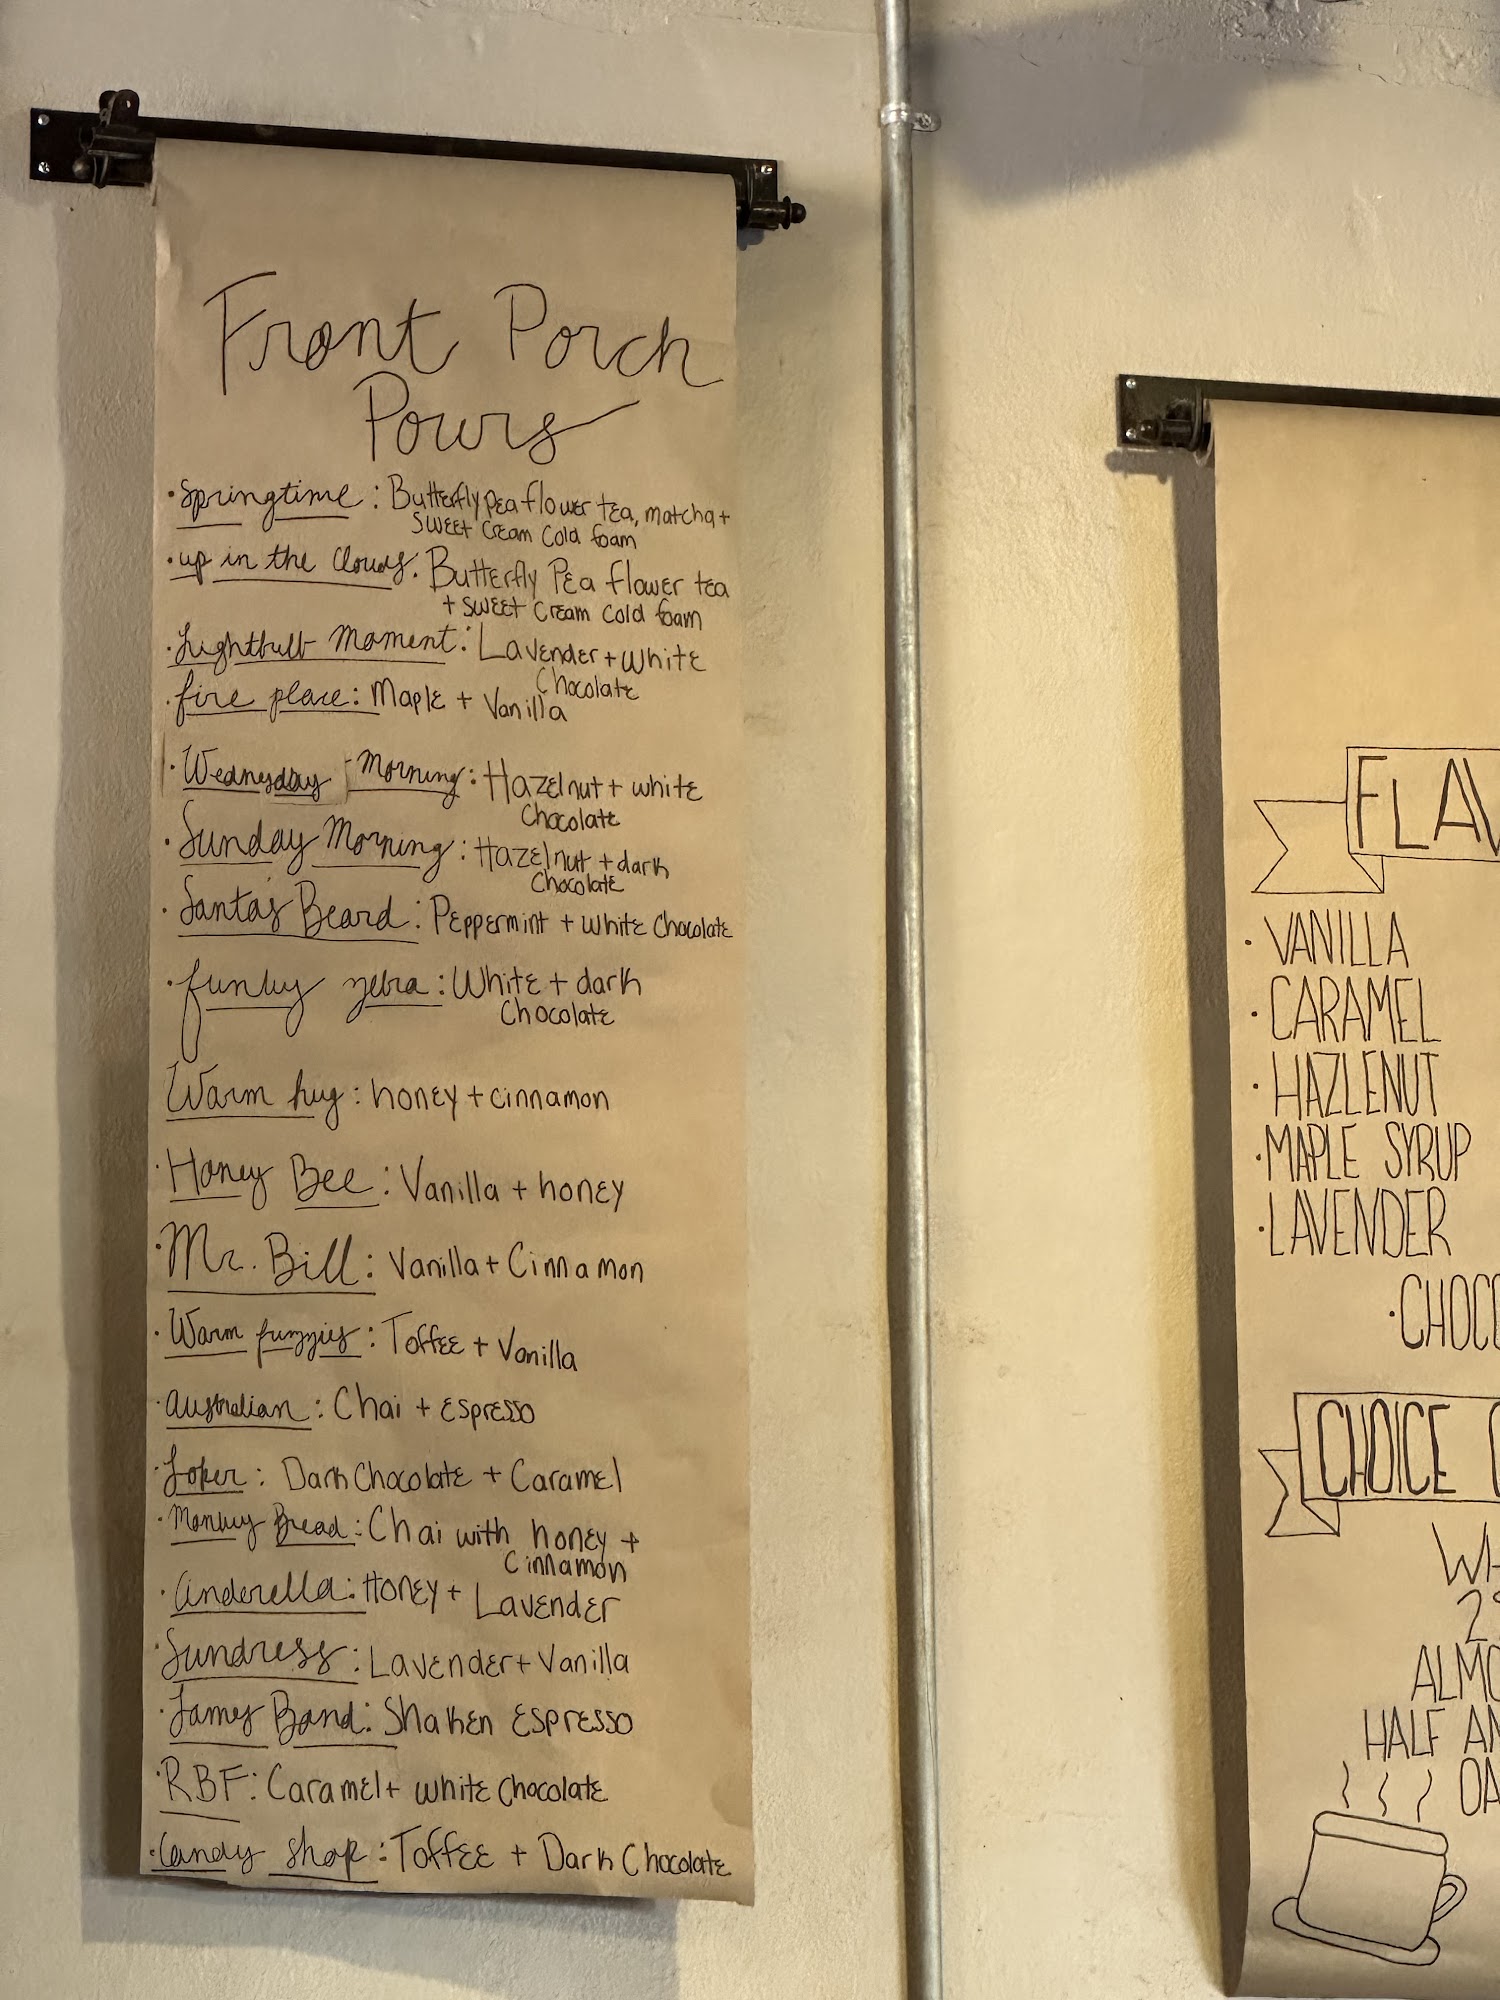 Front Porch
Pours
• Springtime: Butterfly pea flower tea, matcha +
sweet cream cold foam
• up in the clouds: Butterfly Pea flower tea
+ sweet cream cold foam
• Lightbulb Moment: Lavender + white
Chocolate
• fire place: Maple + Vanilla
• Wednesday Morning: Hazelnut + white
Chocolate
• Sunday Morning: Hazelnut + dark
Chocolate
• Santa's Beard: Peppermint + white chocolate
• funky zebra: White + dark
Chocolate
Warm hug: honey + cinnamon
• Honey Bee: Vanilla + honey
• Mr. Bill: Vanilla + Cinnamon
• Warm fuzzies: Toffee + Vanilla
• Australian: Chai + espresso
• Joker: Dark Chocolate + Caramel
• Monkey Bread: Chai with honey +
Cinnamon
• Cinderella: Honey + Lavender
• Sundress: Lavender + Vanilla
• James Bond: Shaken Espresso
• RBF: Caramel + white chocolate
• Candy Shop: Toffee + Dark Chocolate
FLAV
• VANILLA
• CARAMEL
• HAZLENUT
• MAPLE SYRUP
• LAVENDER
• CHOCO
CHOICE
WH
2
ALMO
HALF AN
OA